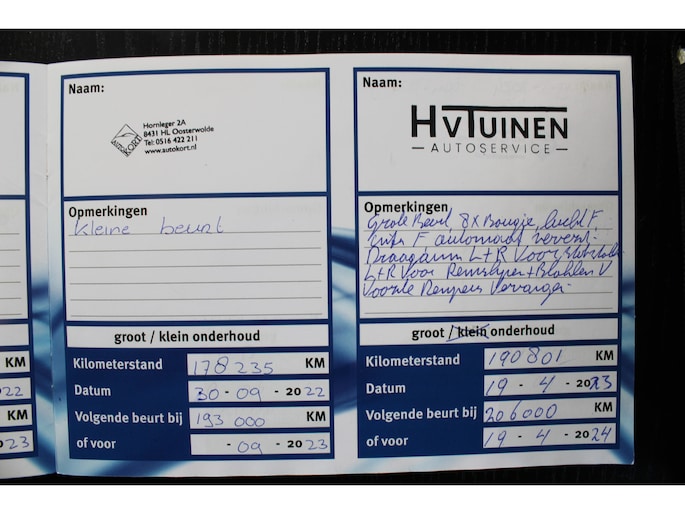 Naam:
Hornleger 2A
8431 HL Oosterwolde
Tel: 0516 422 211
www.autokort.nl
AUTOKORT
Opmerkingen
kleine beurt
groot / klein onderhoud
Kilometerstand 178235 KM
Datum 30-09-2022
Volgende beurt bij 193000 KM
of voor -09-2023
Naam:
HVTUINEN
- AUTOSERVICE -
Opmerkingen
Grote Beurt 8x Bougie, lucht F
F automaat ververst.
Draagarm L+R Voor
L+R Voor Remschijven + Blokken V
Voorste Vervangen.
groot / klein onderhoud
Kilometerstand 190801 KM
Datum 19-4-2023
Volgende beurt bij 206000 KM
of voor 19-4-2024
22
KM
KM
23